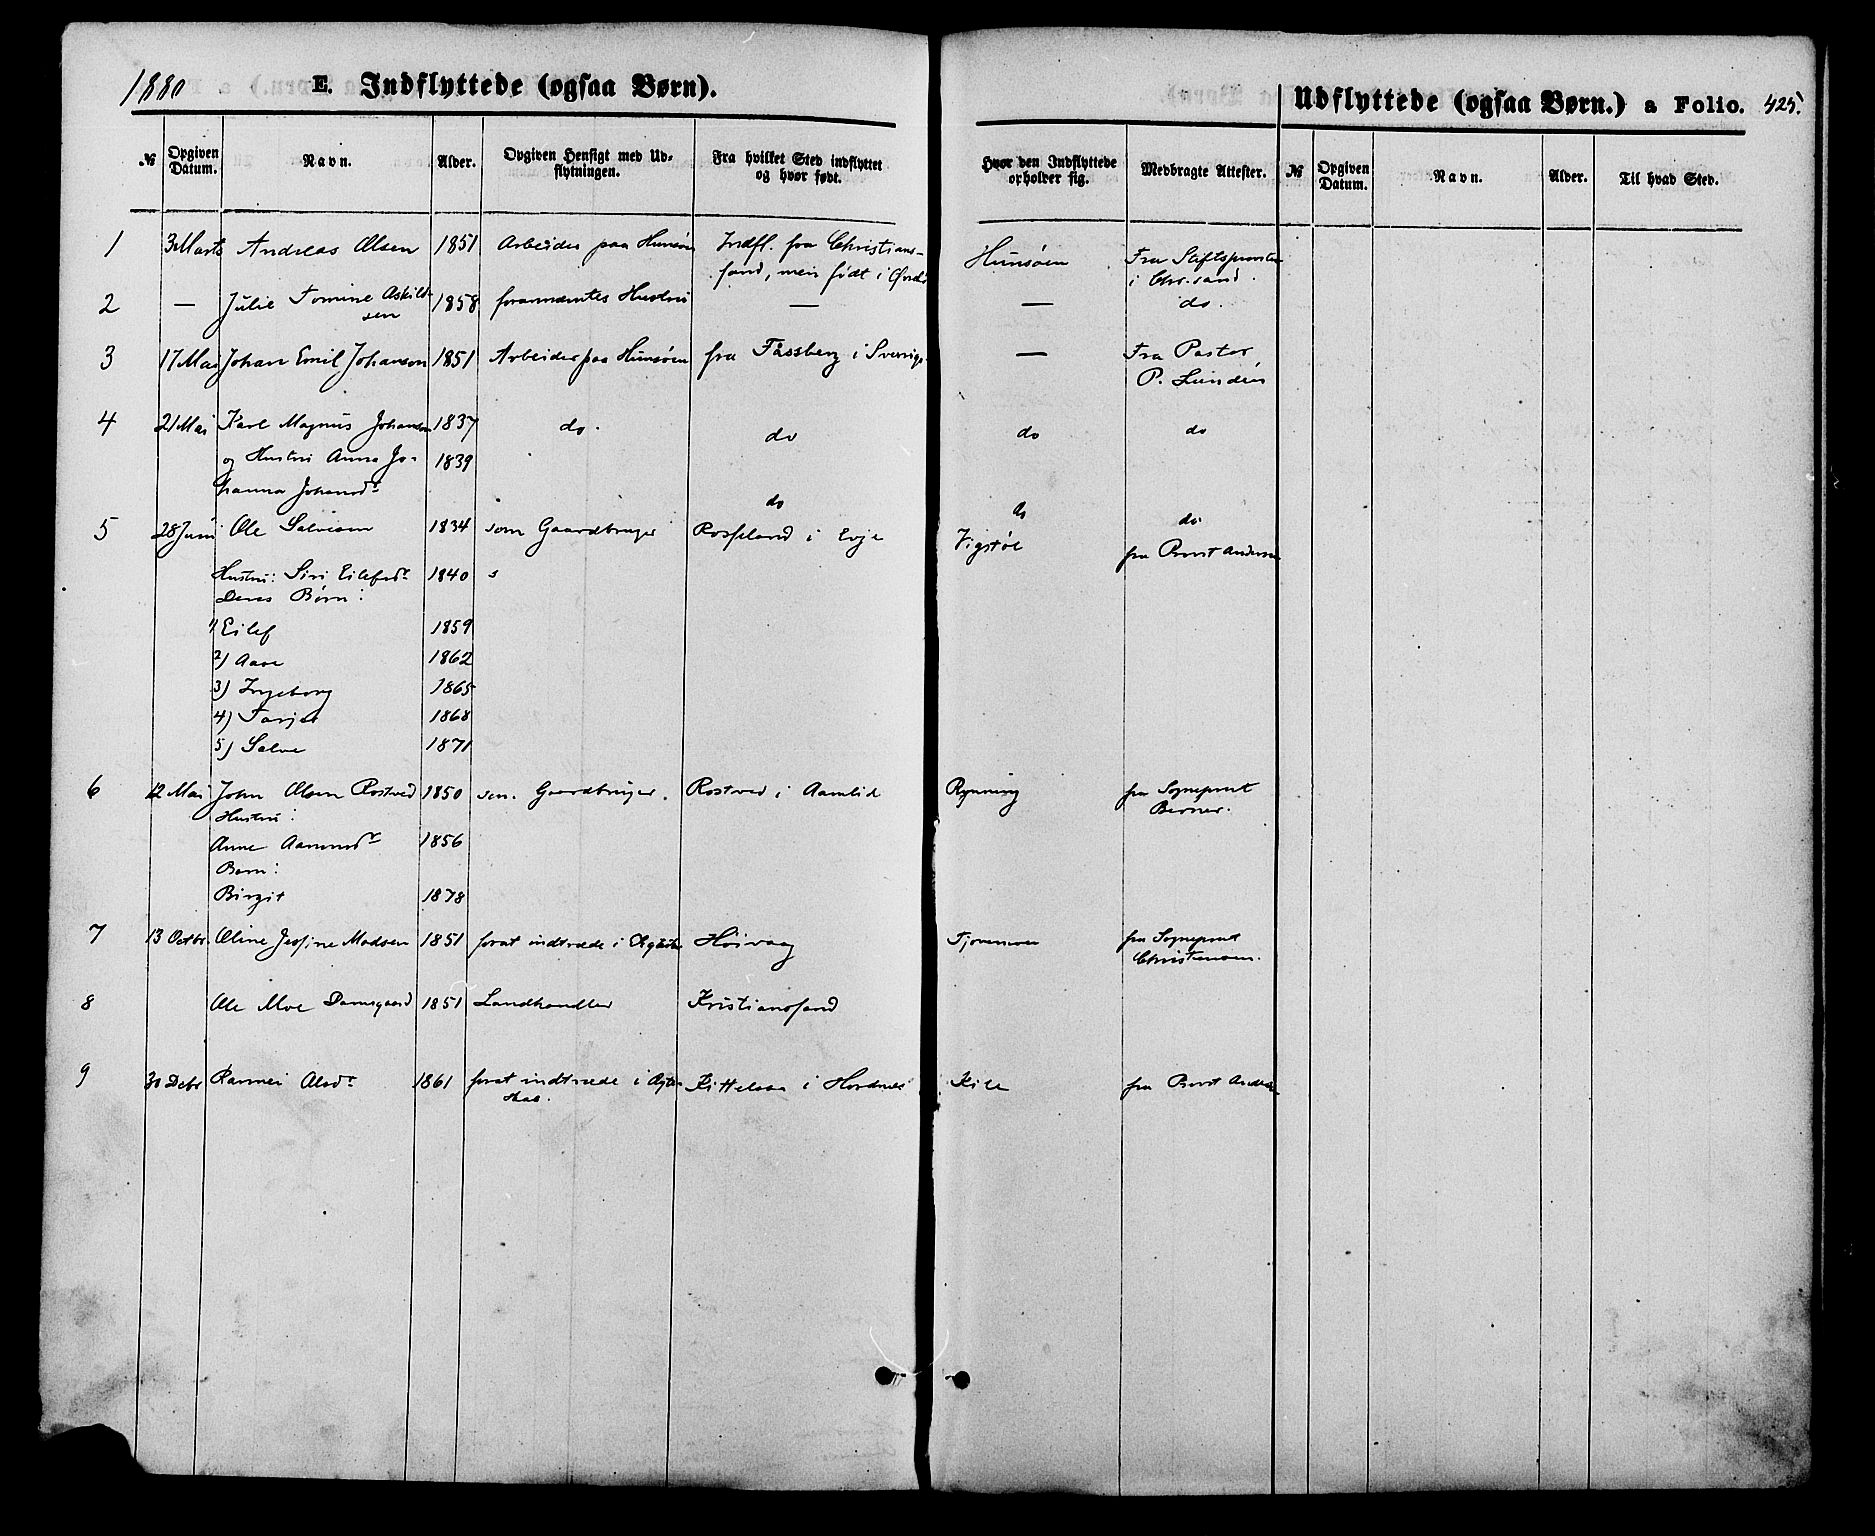 1880 E. Indflyttede (ogsaa Børn).
Udflyttede (ogsaa Børn.) a Folio. 425.
№ Opgiven Datum. Navn. Alder. Opgiven Hensigt med Udflytningen. Fra hvilket Sted indflyttet og hvor født. Hvor den Indflyttede opholder sig. Medbragte Attester. № Opgiven Datum. Navn. Alder. Til hvad Sted.
1 3 Marts Andreas Olsen 1851 Arbeider paa Hunsøen Indfl. fra Christians- Hunsøen Fra Stiftsprovsten
sand, men født i i Chr.sand.
2 — Julie Tomine Askild- 1858 forannævntes Hustru — — do.
sen
3 17 Mai Johan Emil Johanson 1851 Arbeider paa Hunsøen fra Fässberg i Sverige — Fra Pastor
P. Lundén
4 21 Mai Karl Magnus Johanson 1837 do. do do do
og Hustru Anna Jo- 1839
hanna Johansdr
do do do
5 28 Juni Ole Salvesen 1834 som Gaardbruger Rosseland i Evje Vigstøl fra Provst Andersen
Hustru: Siri Eilefsdr 1840
Deres Børn:
1) Eilef 1859
2) Aase 1862
3) Ingeborg 1865
4) Tarjei 1868
5) Salve 1871
6 12 Mai John Olsen Rostved 1850 som Gaardbruger. Rostved i Aamlid Rynning fra Sognepræst
Hustru: Berner.
Anne Aamundr 1856
Barn:
Birgit 1878
7 13 Octbr. Oline Jesfine Madsen 1851 forat indtræde i Høivaag fra Sognepræst
Christensen.
8 Ole Moe Damsgaard 1851 Landhandler Kristianssand
9 30 Decbr Olsdr 1861 forat indtræde i Ægte- Kittelsaa i Hordnes Kile fra Provst Andersen
skab.